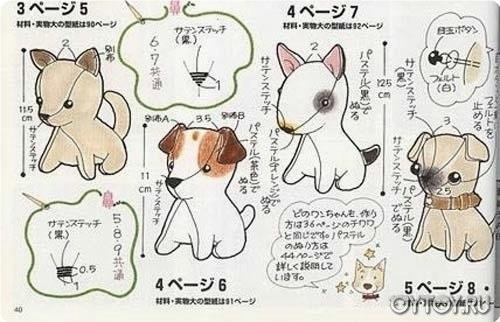 3 ページ 5
材料・実物大の型紙は90ページ
別布
2
11.5
cm
サテンステッチ
鼻
サテンステッチ
(黒)
6・7共通
1
4 ページ 7
材料・実物大の型紙は92ページ
2
12.5
cm
サテンステッチ
パステル(黒)でぬる
パステル(オレンジ)でぬる
目玉ボタン
フェルト
(白)
サテンステッチ
(黒)
フェルトを
止める
2.5
パステル(黒)
でぬる
別布A
3.5
別布B
11
cm
サテンステッチ
パステル(茶色)で
ぬる
鼻
サテンステッチ
(黒)
0.5
5・8・9共通
4 ページ 6
材料・実物大の型紙は91ページ
どのワンちゃんも、作り
方は36ページのチワワ
と同じです。パステル
のぬり方は
44ページで
詳しく説明して
います。
5 ページ 8
40
OYTOY.RU